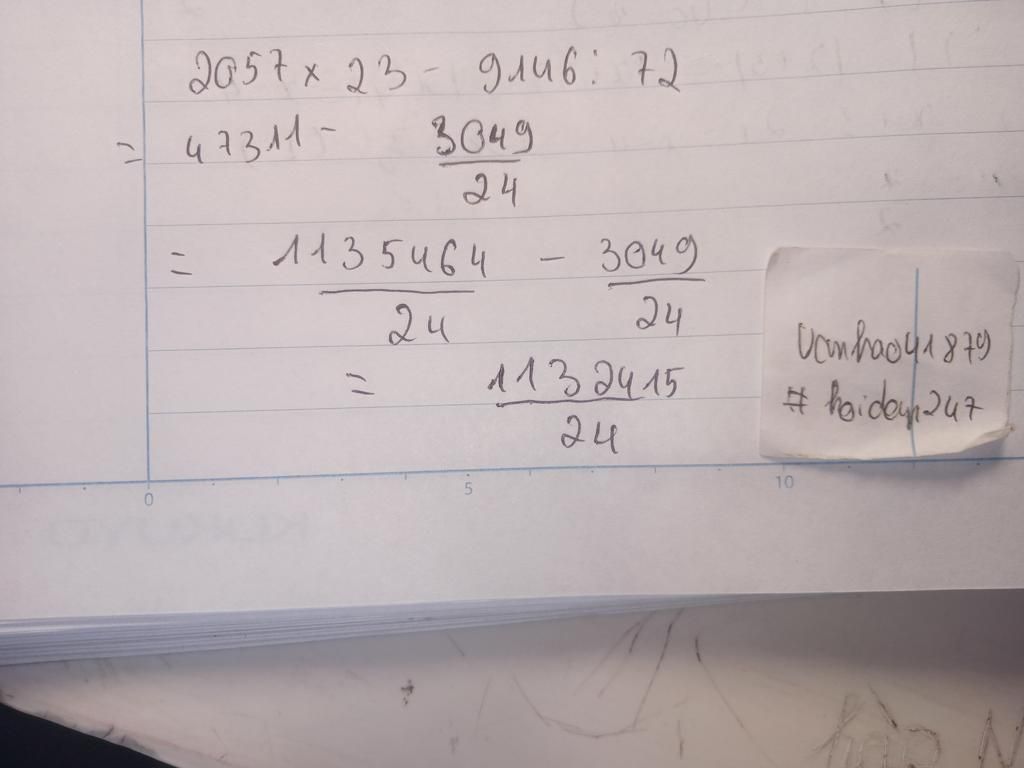 2057 x 23 - 9146 : 72
= 47311 - 3049/24
= 1135464/24 - 3049/24
= 1132415/24
Vanhao41879
# hoidap247
0 5 10
KOKUYO